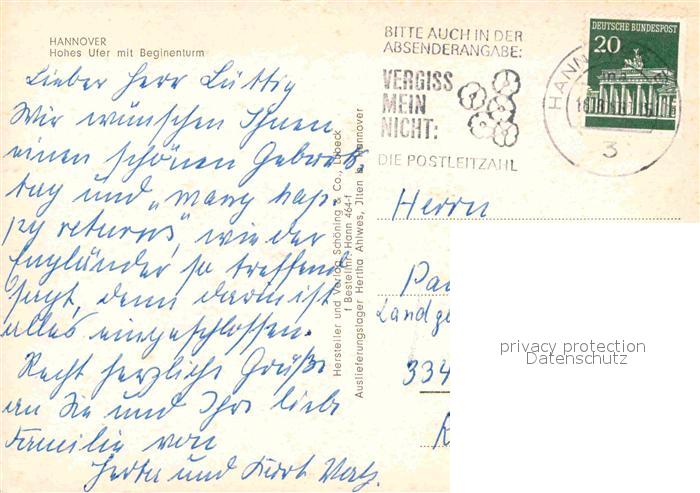 HANNOVER
Hohes Ufer mit Beginenturm
Lieber Herr Lüttig
Wir wünschen Ihnen
einen schönen Geburts
tag und „many hap-
py returns", wie der
Engländer so treffend
sagt, denn darin ist
alles eingeschlossen.
Recht herzliche Grüße
an Sie und Ihre liebe
Familie von
Herta und Kurt
Hersteller und Verlag Schöning & Co., Lübeck
f Bestellnr. Hann 464-1
Auslieferungslager Hertha Ahlwes, Jlten b. Hannover
BITTE AUCH IN DER
ABSENDERANGABE:
VERGISS
MEIN
NICHT:
DIE POSTLEITZAHL
DEUTSCHE BUNDESPOST
20
HANN
3
Herrn
Landge
334
privacy protection
Datenschutz